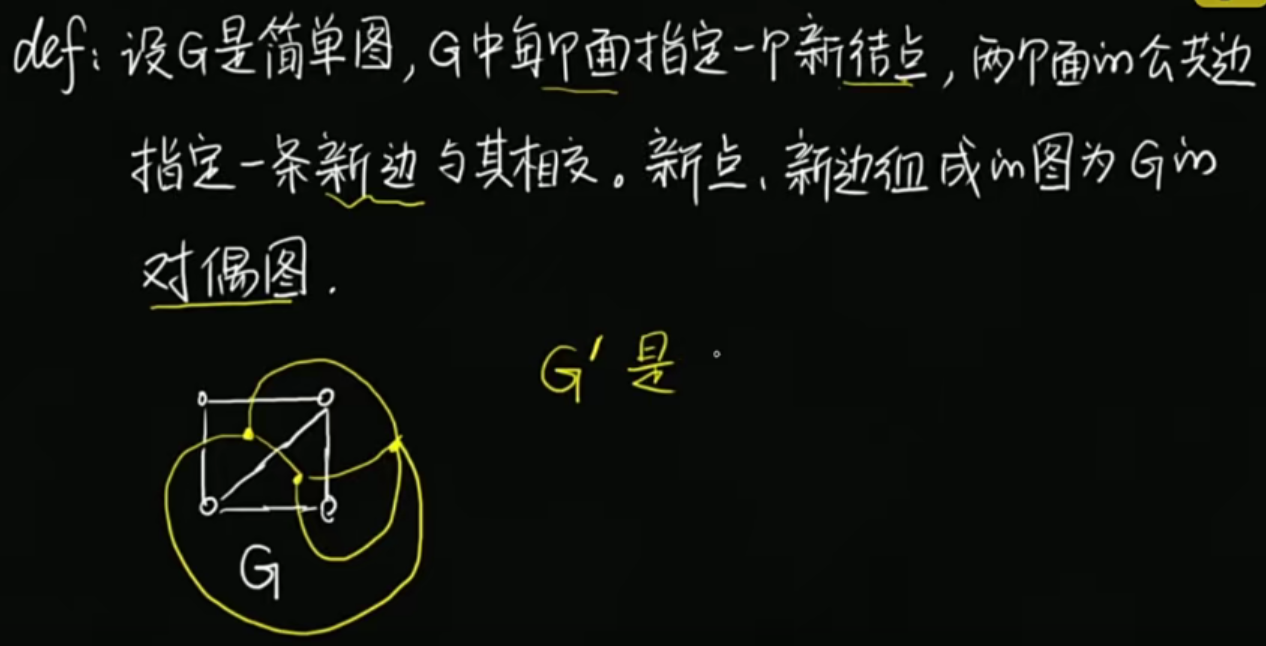 def: 设G是简单图,G中每个面指定一个新结点,两个面的公共边
指定一条新边与其相交。新点、新边组成的图为G的
对偶图.
G'是
G